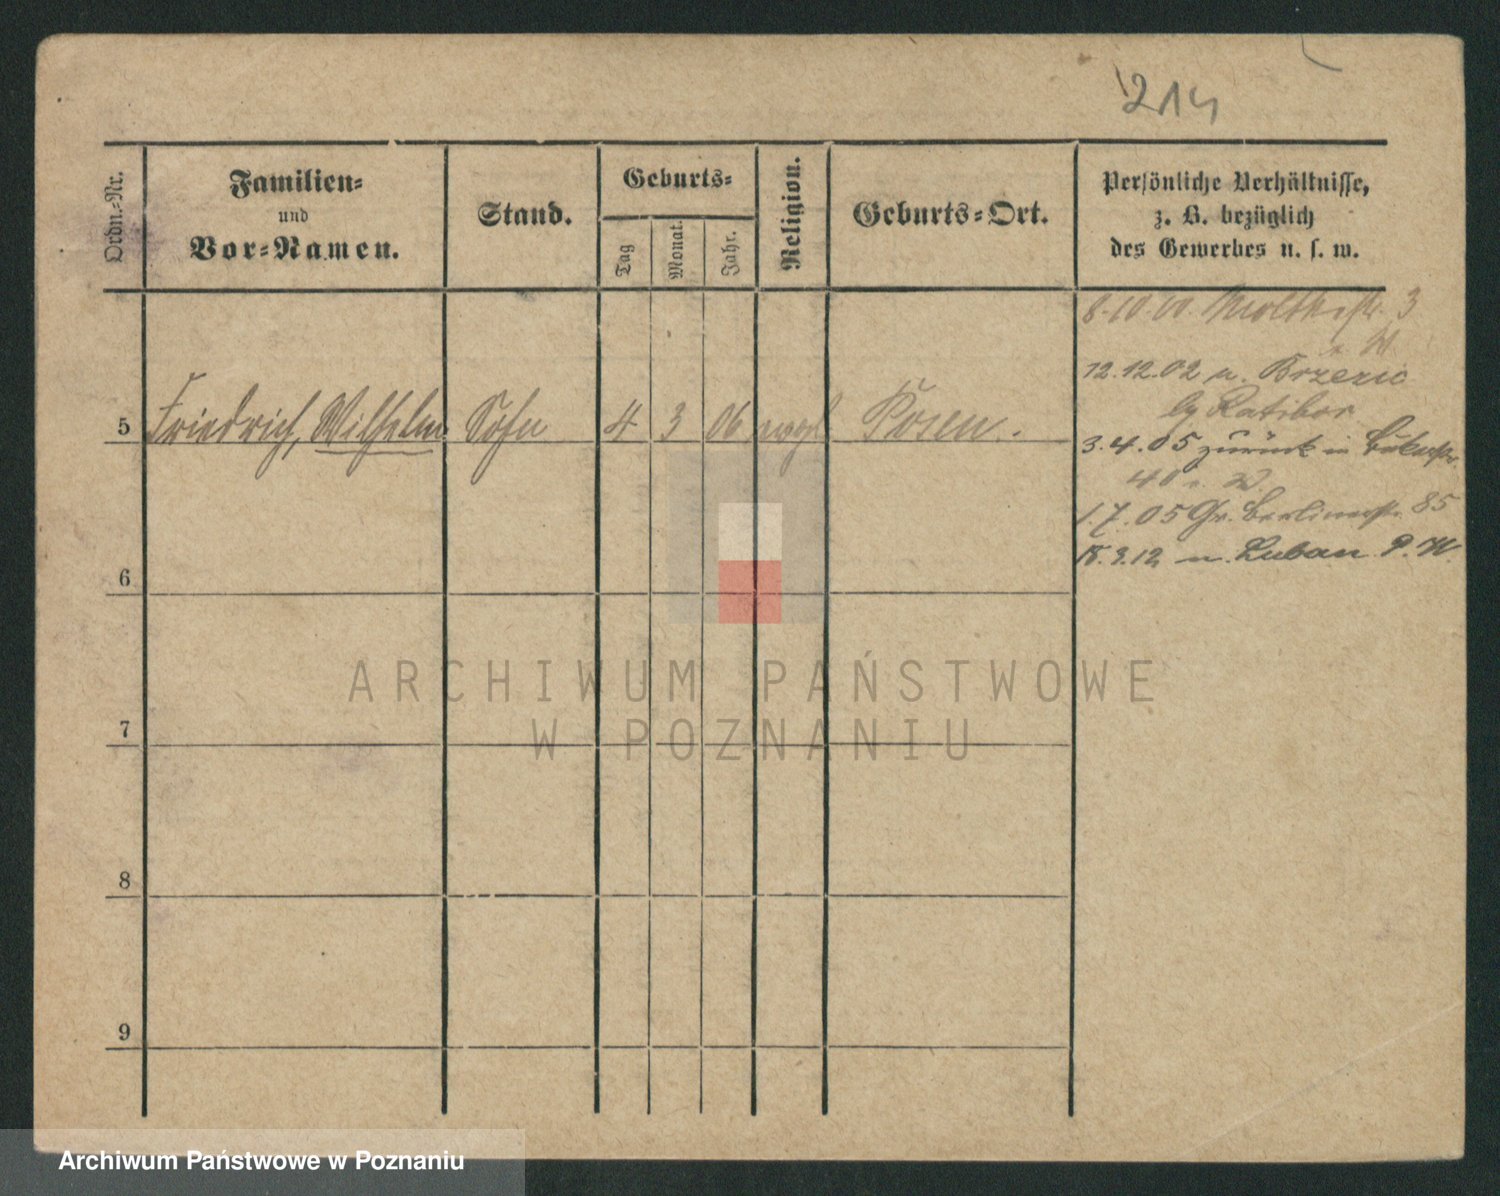 214
Ordn.-Nr.
Familien-
und
Vor-Namen.
Stand.
Geburts-
Tag
Monat.
Jahr.
Religion.
Geburts-Ort.
Persönliche Verhältnisse,
z. B. bezüglich
des Gewerbes u. s. w.
8.10.00. Moltkestr. 3
W.
12.12.02 n. Brzezie
Ratibor
5 Friedrich, Wilhelm Sohn 4 3 06 evgl Posen.
3.4.05 zurück in Bukerstr.
40 W.
1.7.05 Gr. Berlinerstr. 85
18.3.12 n. Luban P. W.
6
7
8
9
ARCHIWUM PAŃSTWOWE
W POZNANIU
Archiwum Państwowe w Poznaniu